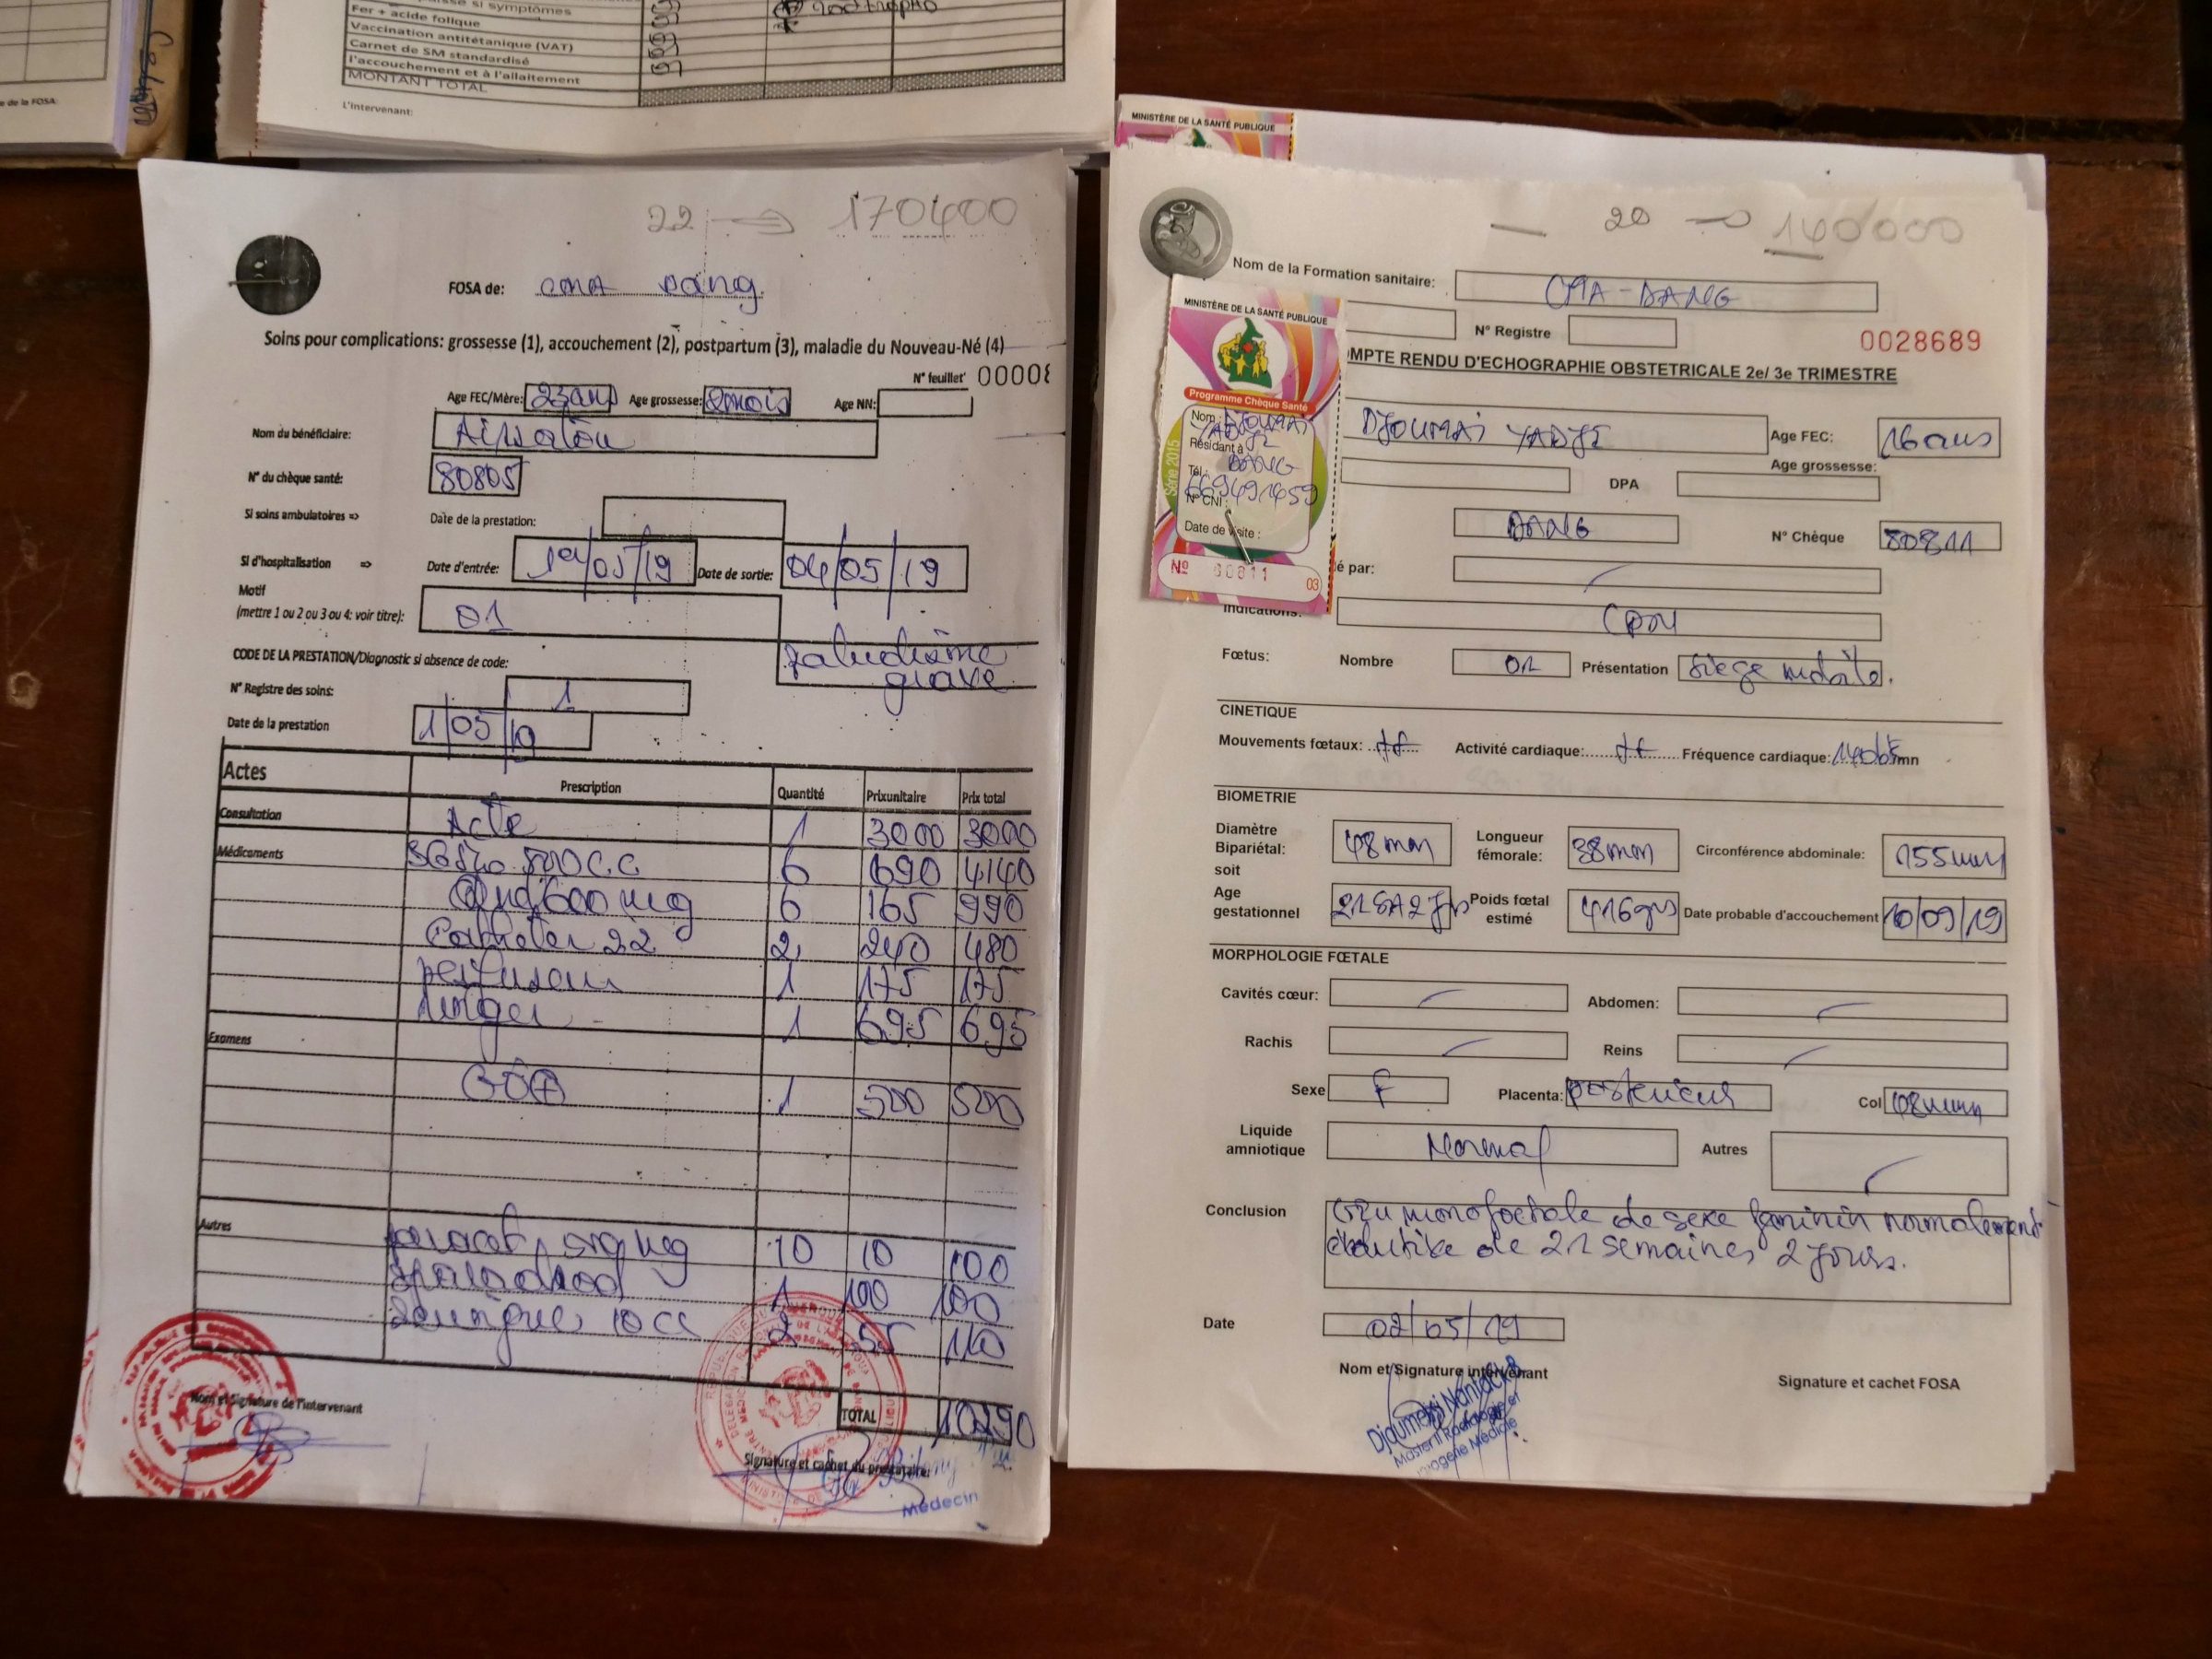 e de la FOSA:
si symptômes
Fer + acide folique
Vaccination antitétanique (VAT)
Carnet de SM standardisé
l'accouchement et à l'allaitement
MONTANT TOTAL
L'intervenant:
22 → 170400
FOSA de: CMA Dang.
Soins pour complications: grossesse (1), accouchement (2), postpartum (3), maladie du Nouveau-Né (4)
N° feuillet 00008
Age FEC/Mère: 23ans Age grossesse: 2mois Age NN:
Nom du bénéficiaire: Aissatou
N° du chèque santé: 80805
Si soins ambulatoires => Date de la prestation:
Si d'hospitalisation => Date d'entrée: 1er/05/19 Date de sortie: 04/05/19
Motif
(mettre 1 ou 2 ou 3 ou 4: voir titre): 01
CODE DE LA PRESTATION/Diagnostic si absence de code: paludisme
grave
N° Registre des soins: 1
Date de la prestation 1/05/19
Actes Prescription Quantité Prixunitaire Prix total
Consultation Acte 1 3000 3000
Médicaments 500 C.C 6 690 4140
600 mg 6 165 990
Catheter 22 2 240 480
perfuseur 1 175 175
ringer 1 695 695
Examens
GE 1 500 500
Autres paracet 500 mg 10 10 100
sparadrap 1 100 100
seringues 10 cc 2 55 110
TOTAL 10290
Nom et Signature de l'intervenant
Signature et cachet du prestataire:
Médecin
MINISTÈRE DE LA SANTÉ PUBLIQUE
20 → 140000
Nom de la Formation sanitaire: CMA-DANG
N° Registre
0028689
MPTE RENDU D'ECHOGRAPHIE OBSTETRICALE 2e/ 3e TRIMESTRE
MINISTÈRE DE LA SANTÉ PUBLIQUE
Programme Chèque Santé
Nom: DJOUMAI
YADJI
Résidant à
DANG
Tél.: 669491459
N° CNI:
Date de visite:
Série 2015
N° 80811 03
DJOUMAI YADJI Age FEC: 16 ans
Age grossesse:
DPA
DANG N° Chèque 80811
é par:
Indications: CPN
Fœtus: Nombre 01 Présentation siege
CINETIQUE
Mouvements fœtaux: ++ Activité cardiaque: ++ Fréquence cardiaque: 140bt/mn
BIOMETRIE
Diamètre Bipariétal: 48mm Longueur fémorale: 38mm Circonférence abdominale: 155mm
soit
Age gestationnel 21SA2Jrs Poids fœtal estimé 416grs Date probable d'accouchement 10/09/19
MORPHOLOGIE FŒTALE
Cavités cœur: Abdomen:
Rachis Reins
Sexe F Placenta: posterieur Col 48mm
Liquide amniotique Normal Autres
Conclusion monofoetale de sexe feminin normalement
de 21 semaines 2 jours.
Date 02/05/19
Nom et Signature intervenant
Signature et cachet FOSA
Master II Radiologie et
Imagerie Médicale